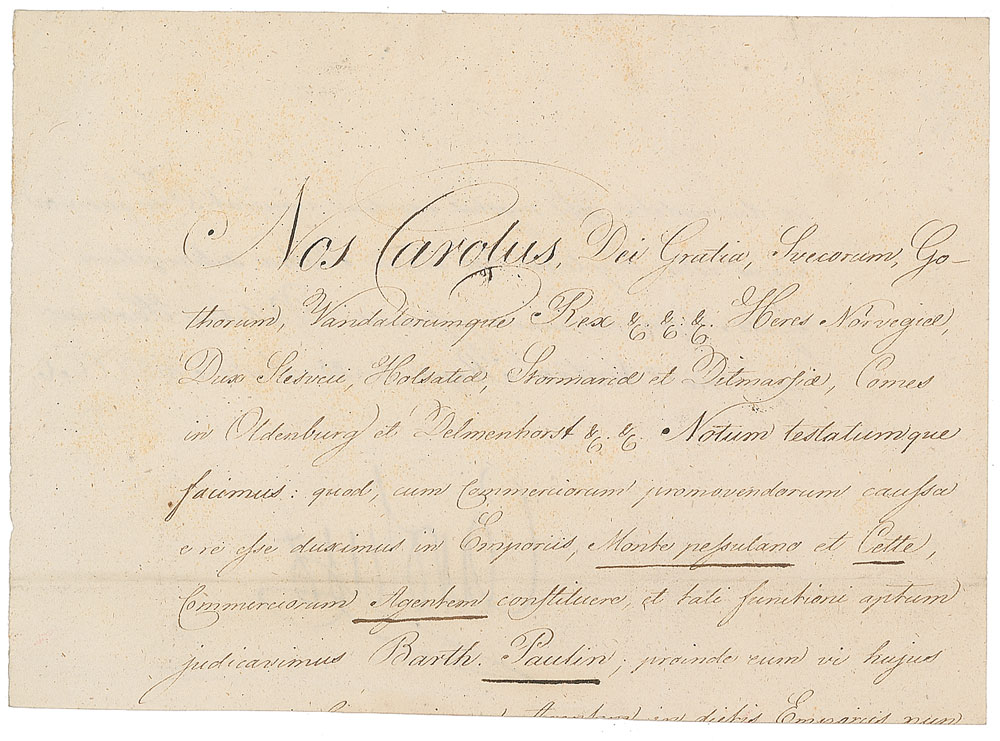 Nos Carolus, Dei Gratia, Svecorum, Go-
thorum, Vandalorumque Rex &. &. &. Heres Norvegiæ,
Dux Slesvici, Holsatiæ, Stormariæ et Ditmarsiæ, Comes
in Oldenburg et Delmenhorst &. &. Notum testatumque
facimus: quod, cum Commerciorum promovendorum caussa
e re esse duximus in Emporiis, Monte pessulano et Cette,
Commerciorum Agentem constituere, et tali functioni aptum
judicavimus Barth. Paulin; proinde eum vi hujus
in dictis Emporiis nun